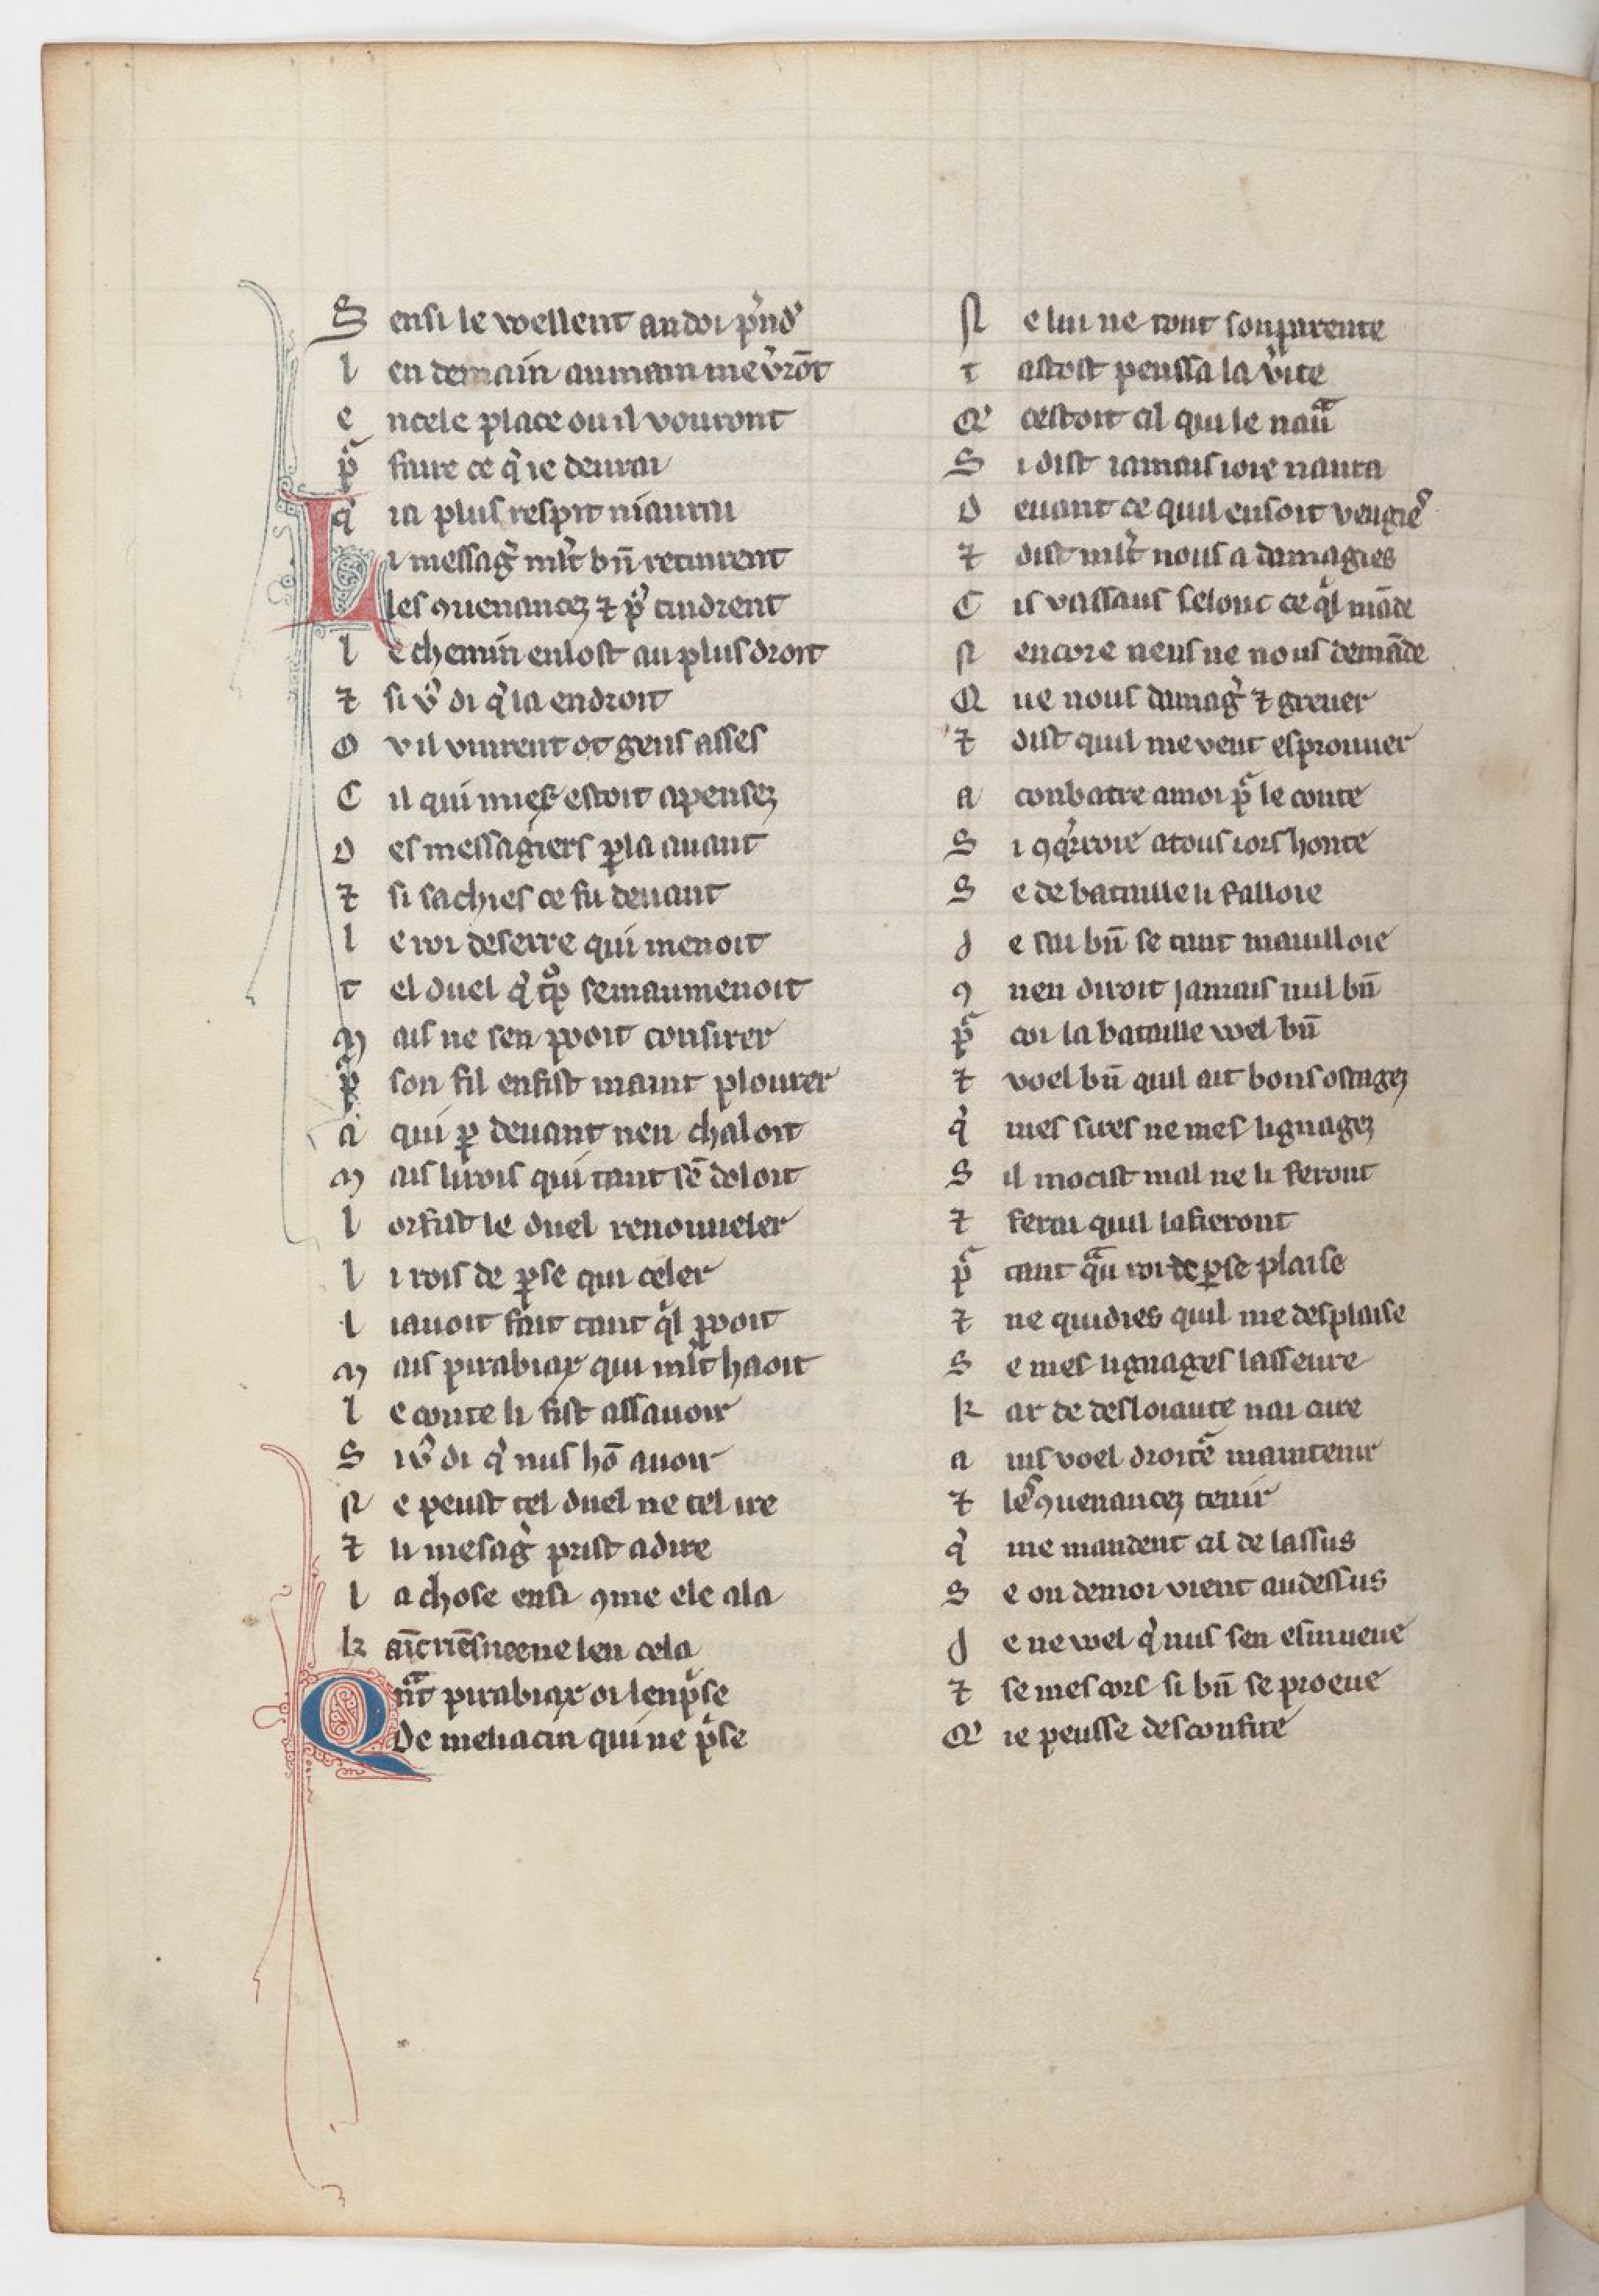 S ensi le wellent andoi p̾nd᷑
l en demain au main me v̾rōt
e ncele place ou il vouront
p᷑ faire ce q̾ ie deurai
q̾ ia plus respit niaurai
L i messag̾ ml̾t bn̄ retinrent
les ꝯuenancez ⁊ p᷑ tindrent
l e chemin en lost au plus droit
⁊ si v᷒ di q̾ la endroit
O v il vinrent ot gens asses
C il qui miex estoit apensez
D es messagiers ꝑla auant
⁊ si sachies ce fu deuant
l e roi deserre qui menoit
t el duel q̾ t°p se maumenoit
M ais ne sen pooit consirer
p᷑ son fil en fist maint plourer
a qui ꝑ deuant nen chaloit
M ais li rois qui tant sē doloit
l or fist le duel renouueler
l i rois de ꝑse qui celer
l iauoit fait tant q̾l pooit
M ais pirabiax qui ml̾t haoit
l e conte li fist assauoir
S i v᷒ di q̾ nus hō auoir
N e peust tel duel ne tel ire
⁊ li mesag̾ prist a dire
l a chose ensi ꝯme ele ala
k
Q nͣt pirabiax oi lenp̾se
De meliacin qui ne p̾se
N e lui ne tout son parente
t astost peussa la v̾ite
Q᷒ cestoit cil qui le nauͣ
S i dist iamais ioie naura
D euant ce quil en soit vengie᷒
⁊ dist ml̾t nous a damagies
C is vassaus selonc ce q̾l māde
N encore neus ne nous demāde
Q ue nous damag̾ ⁊ greuer
⁊ dist quil me veut esprouuer
a conbatre a moi p᷑ le conte
S i ꝯq̾rroie a tous iors honte
S e de bataille li falloie
J e sai bn̄ se tant mauilloie
ꝯ nen diroit jamais nul bn̄
p᷑ coi la bataille voel bn̄
⁊ voel bn̄ quil ait bons ostagez
q̾ mes sires ne mes lignagez
S il mocist mal ne li feront
⁊ ferai quil lafieront
p᷑ tant qͣu roi de ꝑse plaise
⁊ ne quidies quil me desplaise
S e mes lignages lasseure
k ar de desloiaute nai cure
a ins voel droitē maintenir
⁊ les ꝯuenancez tenir
q̾ me mandent cil de lassus
S e on de moi vient au dessus
J e ne wel q̾ nus sen esmueue
⁊ se mes cors si bn̄ se proeue
Q᷒ ie peusse desconfire